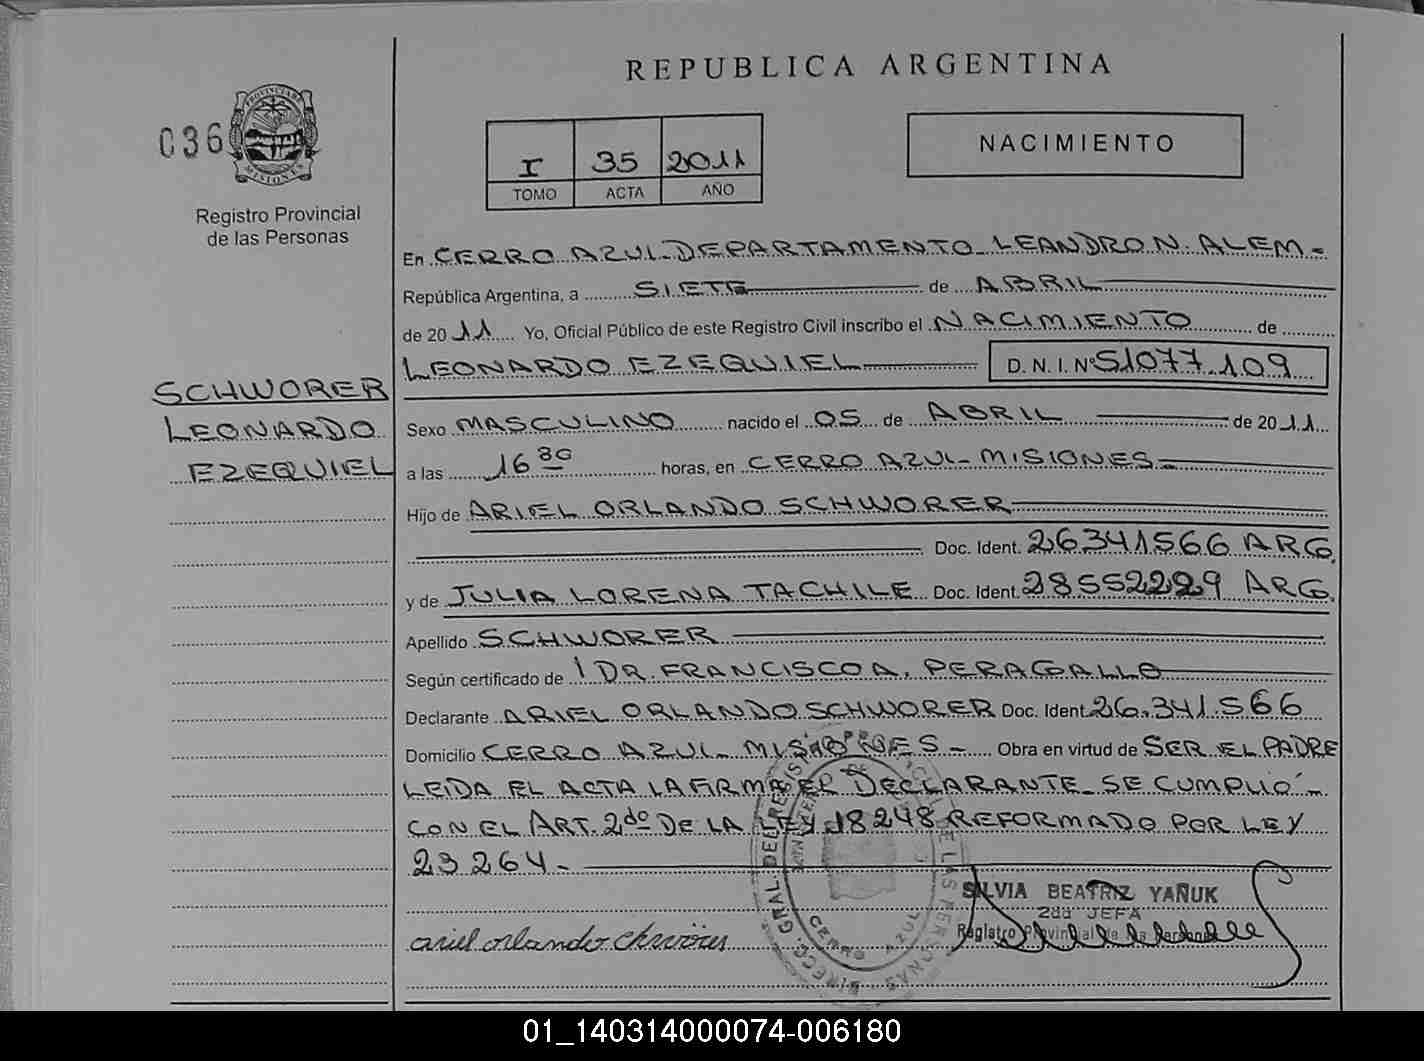 REPUBLICA ARGENTINA
036
PROVINCIA DE MISIONES
Registro Provincial
de las Personas
I 35 2011
TOMO ACTA AÑO
NACIMIENTO
En CERRO AZUL DEPARTAMENTO LEANDRO N. ALEM -
República Argentina, a SIETE de ABRIL
de 2011 Yo, Oficial Público de este Registro Civil inscribo el NACIMIENTO de
LEONARDO EZEQUIEL D.N.I.Nº 51077.109
SCHWORER
LEONARDO
EZEQUIEL
Sexo MASCULINO nacido el 05 de ABRIL de 2011
a las 16 30 horas, en CERRO AZUL - MISIONES -
Hijo de ARIEL ORLANDO SCHWORER
Doc. Ident. 26341566 ARG.
y de JULIA LORENA TACHILE Doc. Ident. 28552229 ARG.
Apellido SCHWORER
Según certificado de 1 DR. FRANCISCO A. PERAGALLO
Declarante ARIEL ORLANDO SCHWORER Doc. Ident. 26.341.566
Domicilio CERRO AZUL - MISIONES - Obra en virtud de SER EL PADRE
LEIDA EL ACTA LA FIRMA EL DECLARANTE - SE CUMPLIÓ -
CON EL ART. 2do DE LA LEY 18248 REFORMADO POR LEY
23264 -
SILVIA BEATRIZ YAÑUK
2da JEFA
Registro Provincial de las Personas
ariel orlando
CERRO AZUL
01_140314000074-006180